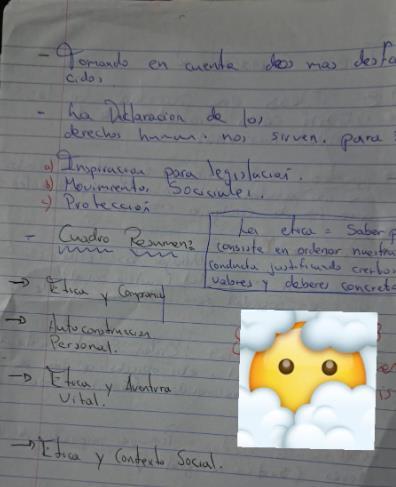 - Tomando en cuenta dos mas desfa
cidos.
- La Declaracion de los
derechos human. nos sirven. para
a) Inspiracion para legislacion.
b) Movimientos Sociales.
c) Proteccion
- Cuadro Resumen:
La etica = Saber p
consiste en ordenar nuestra
conducta justificando ciertos
valores y deberes concreta
→ Etica y
→ Autoconstruccion
Personal.
→ Etica y Aventura
Vital.
→ Etica y Contexto Social.